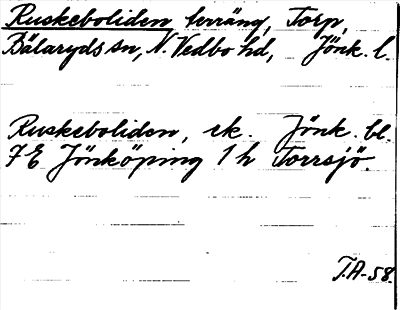 Ruskeboliden terräng, Torp,
Bälaryds sn, N. Vedbo hd, Jönk. l.
Ruskeboliden, ek. Jönk. bl.
7E Jönköping 1h Torrsjö.
T.A-58